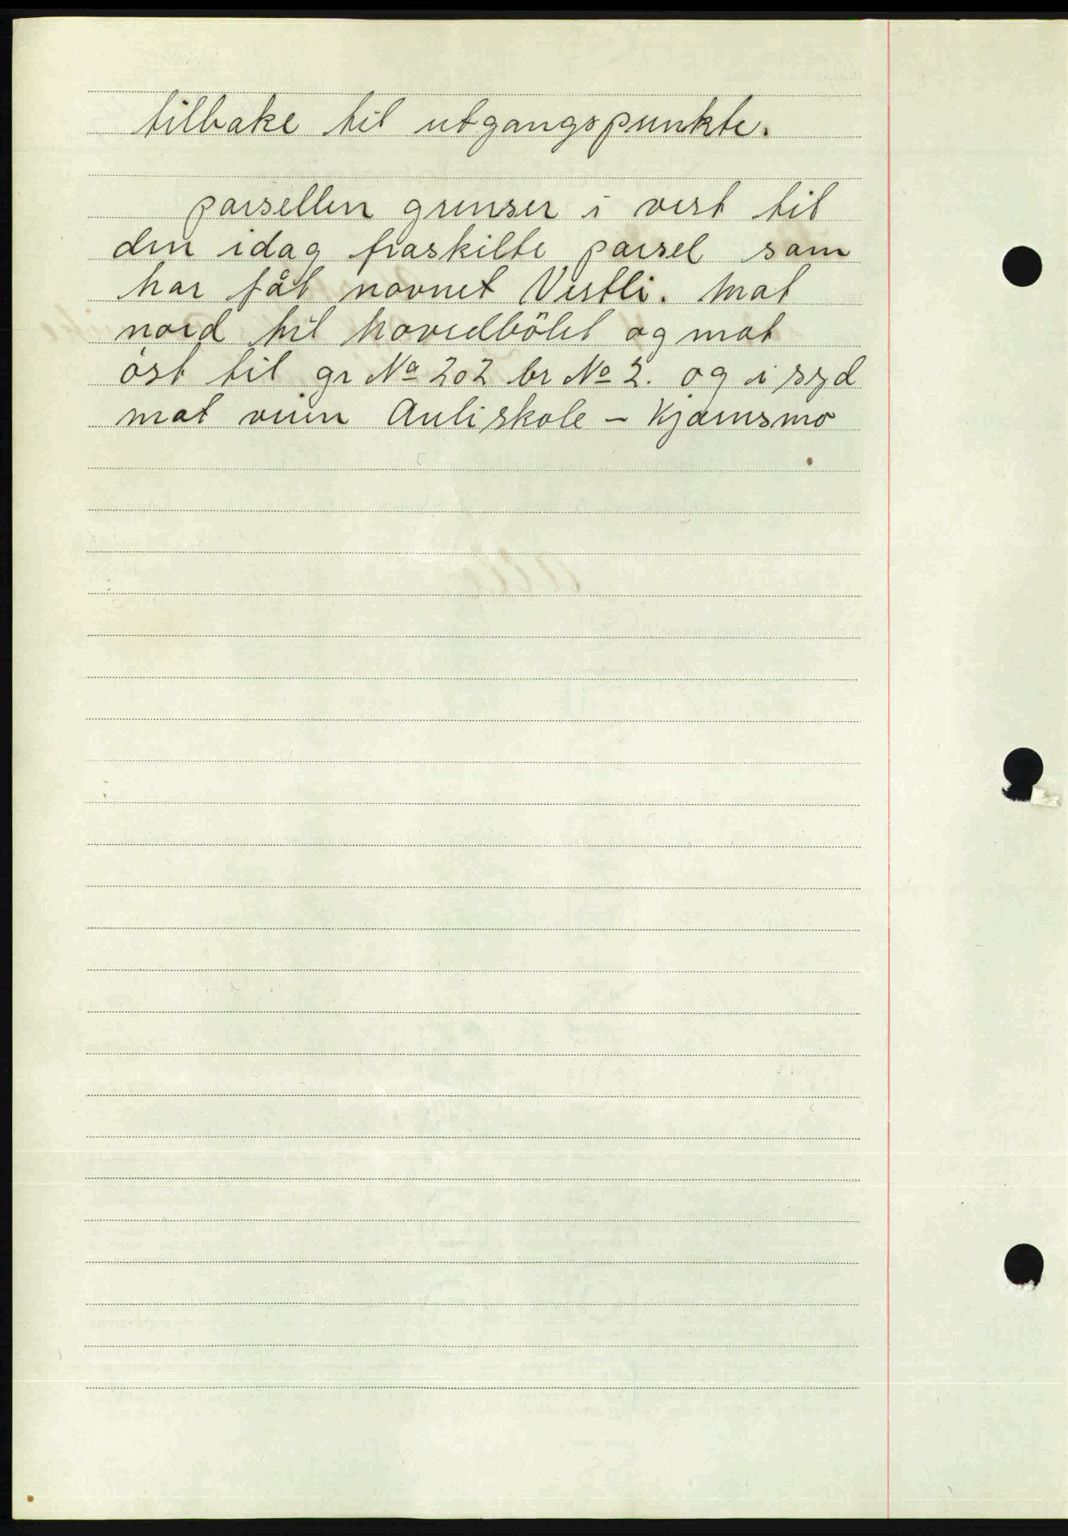 tilbake til utgangspunkte.
parsellen grenser i vest til
den idag fraskilte parsel som
har fåt navnet Vestli. mot
nord til hovedbölet og mot
öst til gr № 202 br № 2. og i syd
mot veien Auli skole – Kjærnsmo